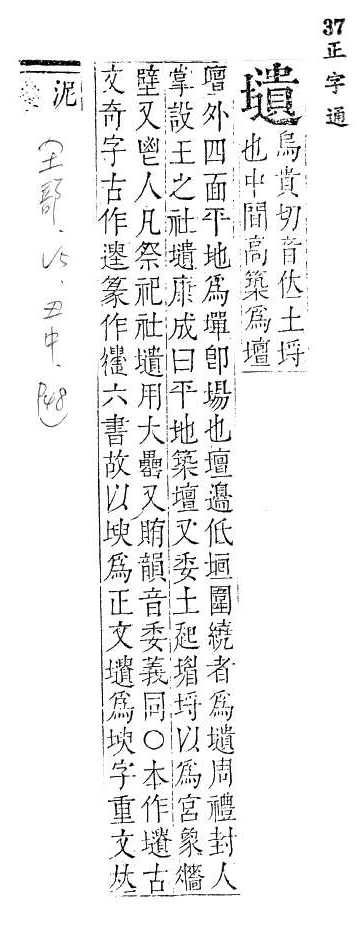 37 正字通
壝
烏貴切音土埒
也中閒高築爲壇
壇外四面平地爲墠卽場也壇邊低垣圍繞者爲壝周禮封人
掌設王之社壝康成曰平地築壇又委土起堳埒以爲宮象牆
壁又鬯人凡祭祀社壝用大罍又賄韻音委義同○本作壝古
文奇字古作篆作六書故以爲正文壝爲字重文
泥
(土部、15、丑中、P48)